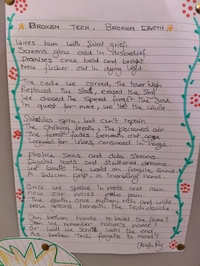 Broken Tech, Broken Earth
Wires hum with silent grief,
Screens glow cold in disbelief
Promises once bold and bright
Now flicker out in dying light
The code we carved, the tower high
Replaced the stars, erased the sky
We chased the speed, forgot the soul
In quest for more, we lost the whole
Satellites spin, but can't explain
The choking breath, the poisoned air
The forest fades beneath our gaze
for likes, consumed in rage
Plastic seas and data streams
Digital gods and shattered dreams
We built the world on fragile sand
A silicon grip, a trembling hand
Once we spoke in roots and rain
Now our voices echo pain
The earth, once mother, rich and wide
Now beneath the
Can broken hands rebuild the flame?
Can we remember nature's name?
Or will we scroll until the end
As broken tech forgets to mend?